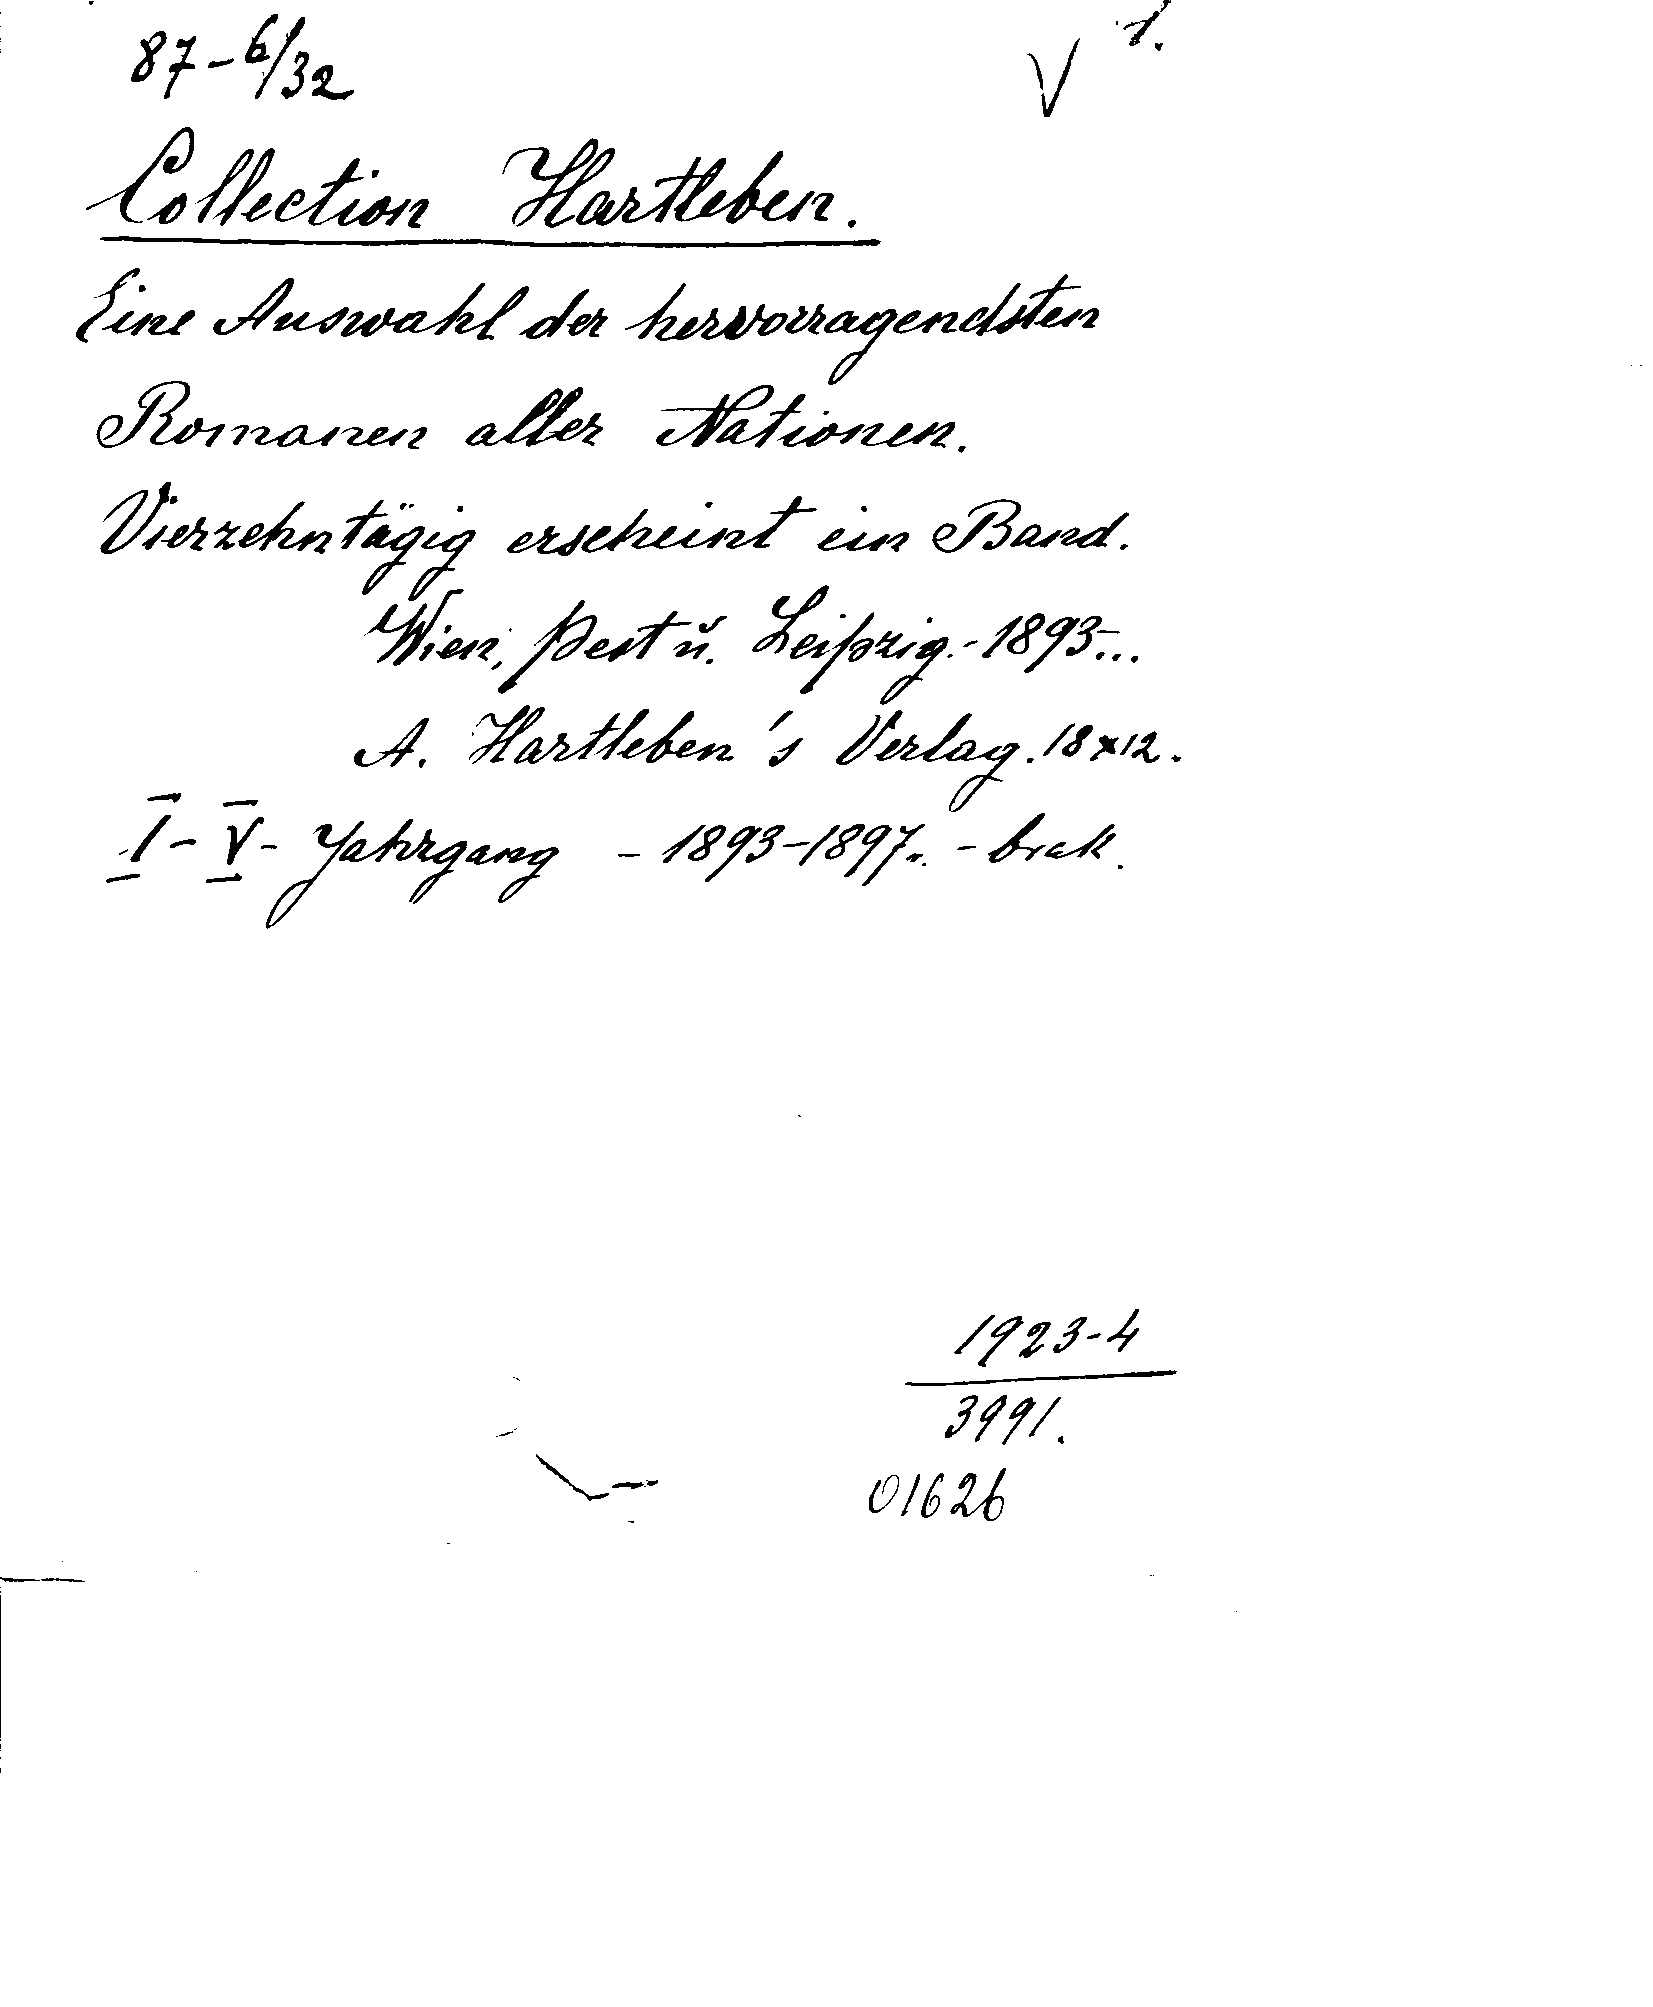 87-6/32 V 1.
Collection Hartleben.
Eine Auswahl der hervorragendsten
Romanen aller Nationen.
Vierzehntägig erscheint ein Band.
Wien, Pest ŭ. Leipzig.-1893-...
A. Hartleben's Verlag. 18x12.
I-V- Jahrgang - 1893-1897.. - brak.
1923-4
3991.
01626